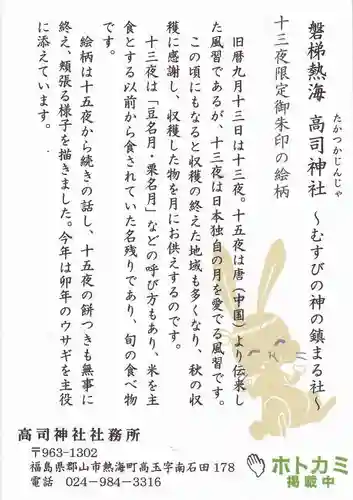 磐梯熱海 高司神社 ～むすびの神の鎮まる社～
たかつかじんじゃ
十三夜限定御朱印の絵柄
旧暦九月十三日は十三夜。十五夜は唐（中国）より伝来し
た風習であるが、十三夜は日本独自の月を愛でる風習です。
この頃にもなると収穫の終えた地域も多くなり、秋の収
穫に感謝し、収穫した物を月にお供えするのです。
十三夜は「豆名月・栗名月」などの呼び方もあり、米を主
食とする以前から食されていた名残りであり、旬の食べ物
です。
絵柄は十五夜から続きの話し、十五夜の餅つきも無事に
終え、頬張る様子を描きました。今年は卯年のウサギを主役
に添えています。
高司神社社務所
〒963-1302
福島県郡山市熱海町高玉字南石田 178
電話 024-984-3316
ホトカミ
掲載中